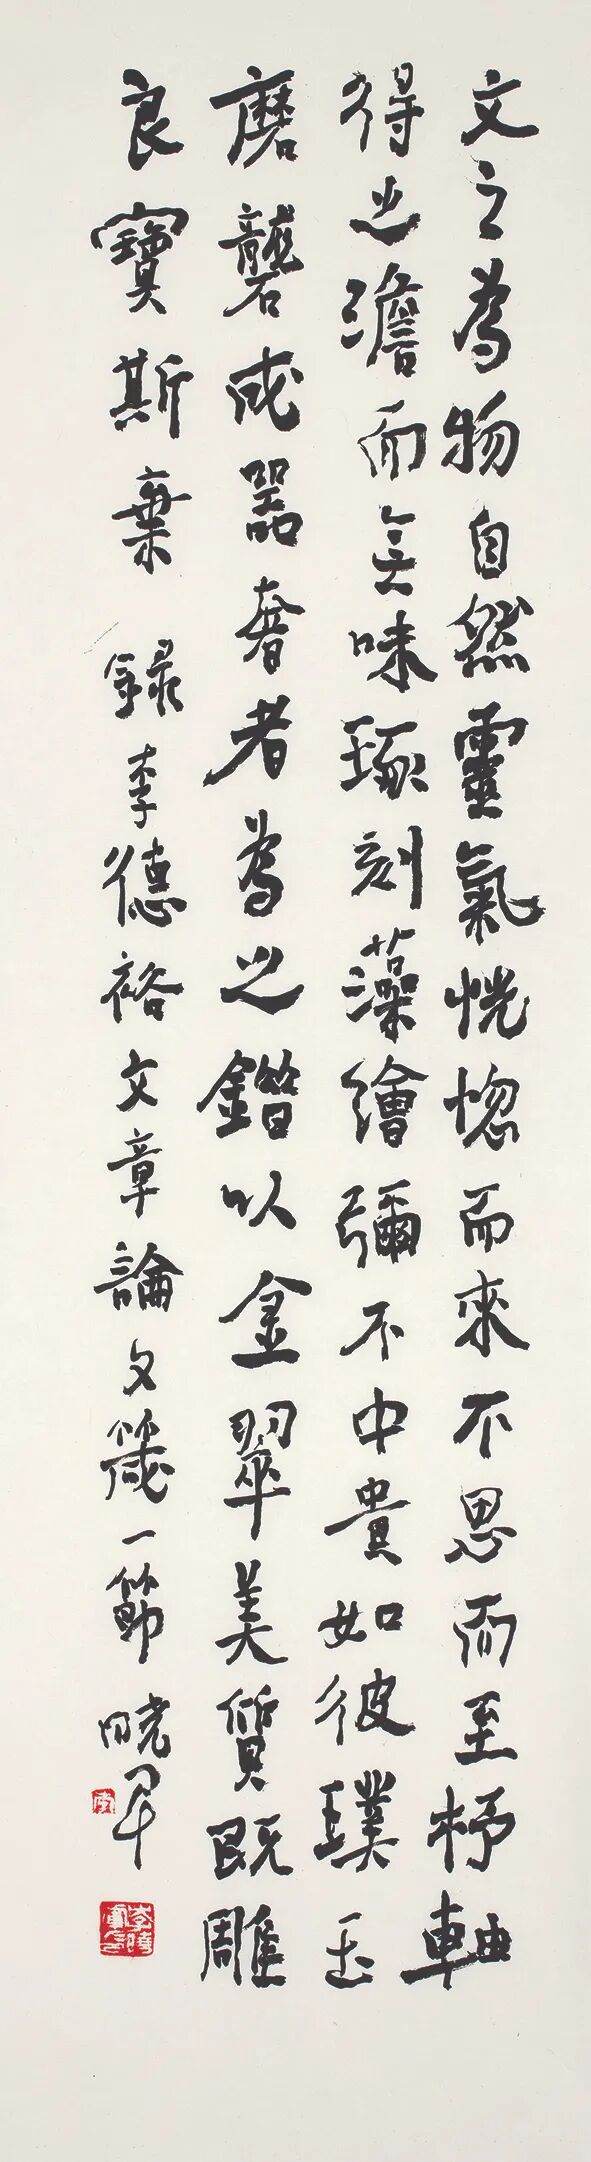 文之為物自然靈氣恍惚而來不思而至杼軸
得之澹而無味琢刻藻繪彌不中貴如彼璞玉
磨礱成器奢者為之錯以金翠美質既雕
良寶斯棄 錄李德裕文章論文箴一節 曉軍
李
李曉軍